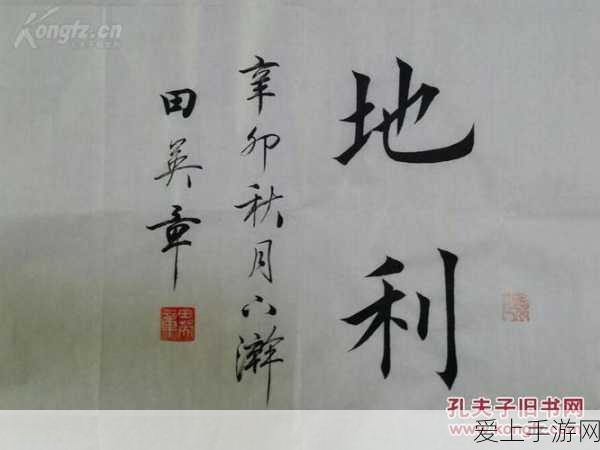 Kongfz.cn
地利
辛卯秋月下澣
田英章
孔夫子旧书网
爱上手游网